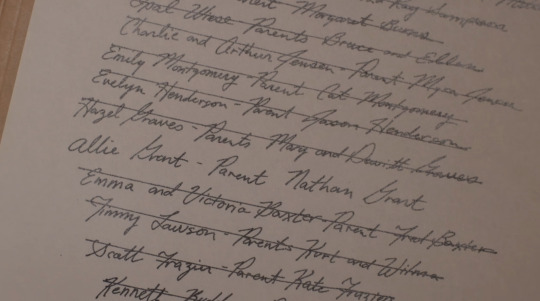 Parent Margaret Burns
Opal Whose Parents Bruce and Ellen
Charlie and Arthur Jensen - Parent Myra Jensen
Emily Montgomery - Parent Cat Montgomery
Evelyn Henderson - Parent Jason Henderson
Hazel Graves - Parents Mary and Graves
Allie Grant - Parent Nathan Grant
Emma and Victoria Baxter - Parent Fred Baxter
Timmy Lawson - Parents Kurt and
Scott Frazier Parent Kate Frazier
Kennett